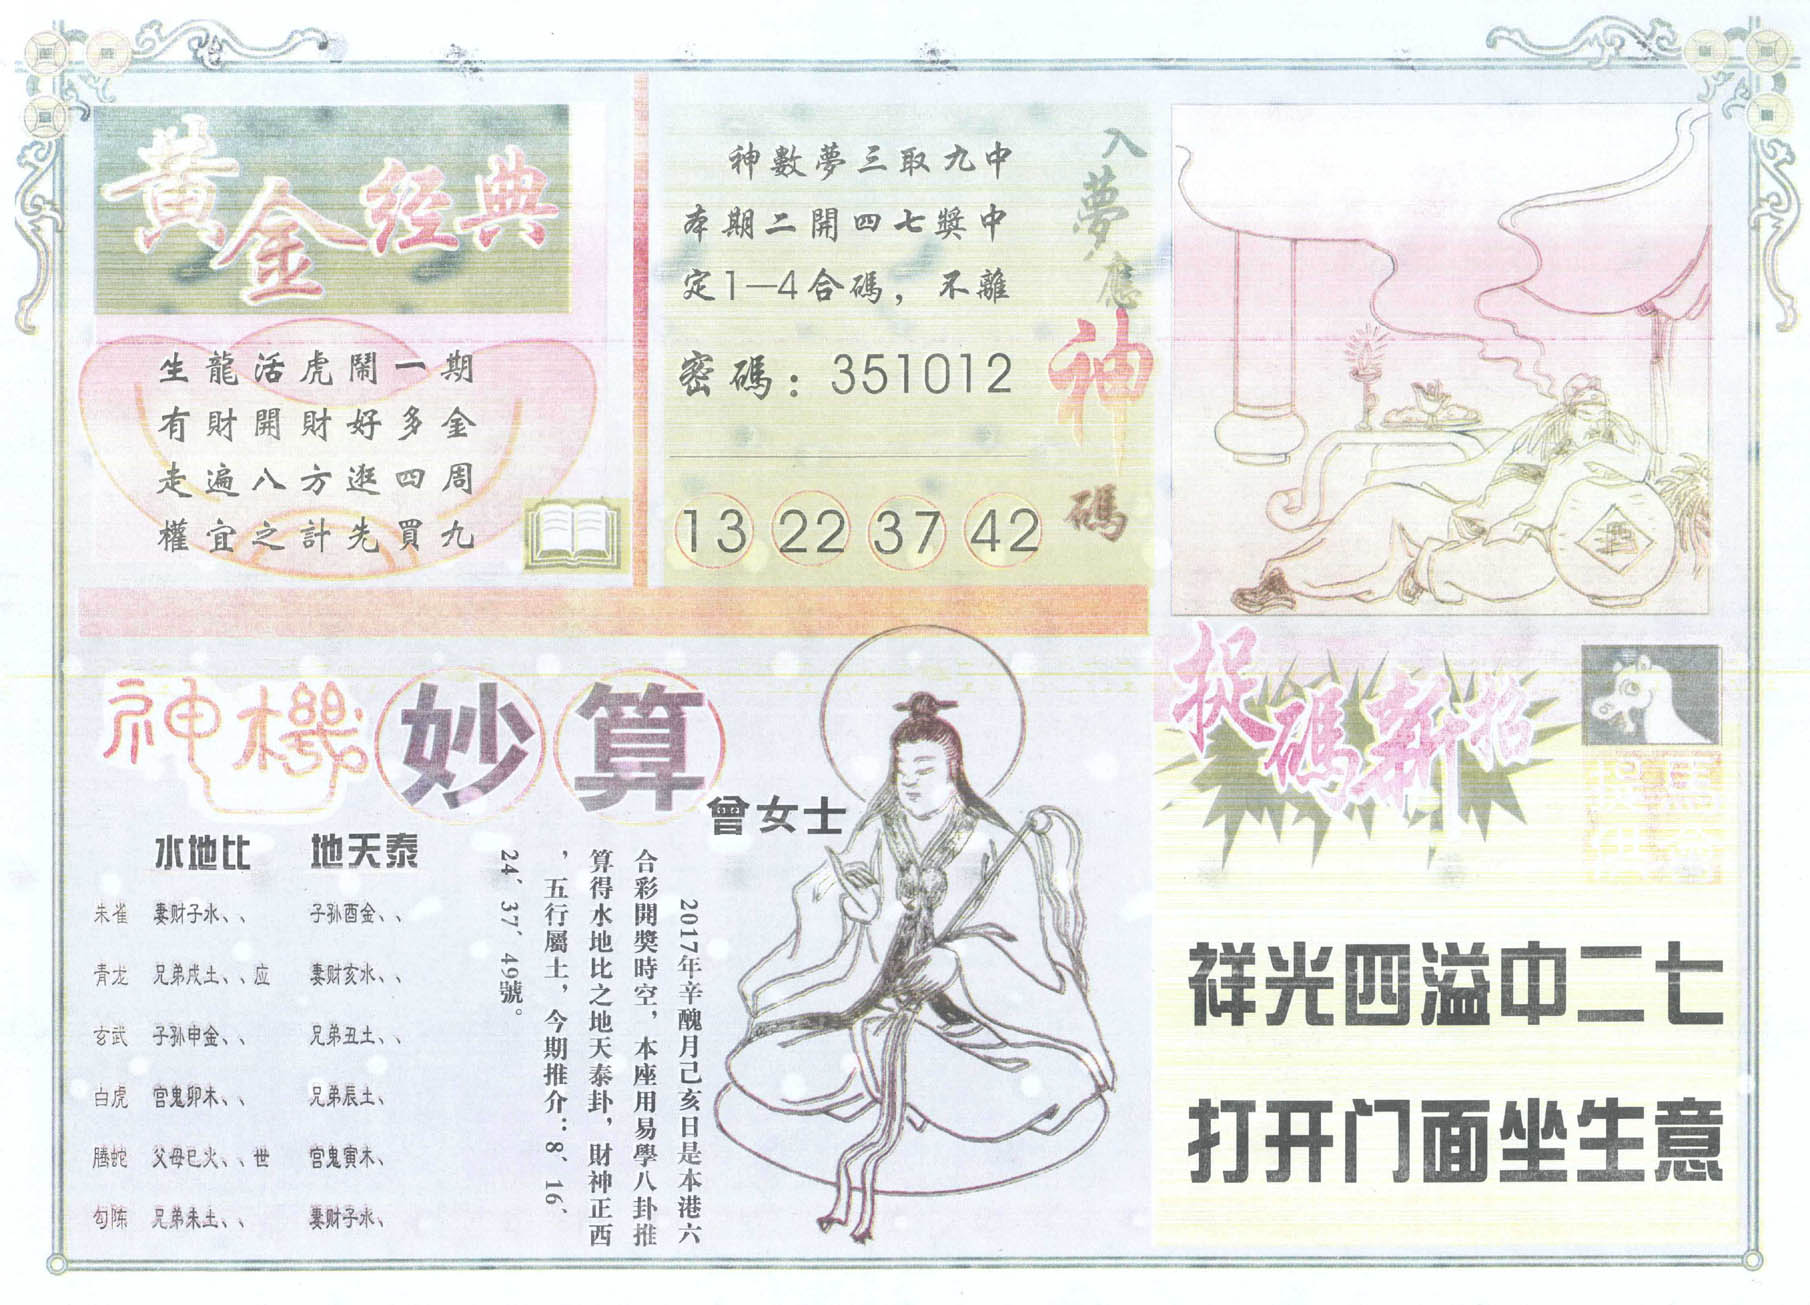 黃金经典
生龍活虎鬧一期
有財開財好多金
走遍八方逛四周
權宜之計先買九
入夢應神碼
神數夢三取九中
本期二開四七獎中
定1—4合碼，不離
密碼：351012
13 22 37 42
神機妙算
曾女士
水地比 地天泰
朱雀 妻财子水、、 子孙酉金、、
青龙 兄弟戌土、、应 妻财亥水、、
玄武 子孙申金、、 兄弟丑土、、
白虎 官鬼卯木、、 兄弟辰土、
腾蛇 父母巳火、、世 官鬼寅木、
勾陈 兄弟未土、、 妻财子水、
2017年辛醜月己亥日是本港六
合彩開獎時空，本座用易學八卦推
算得水地比之地天泰卦，財神正西
，五行屬土，今期推介：8、16、
24、37、49號。
捉碼新招
祥光四溢中二七
打开门面坐生意